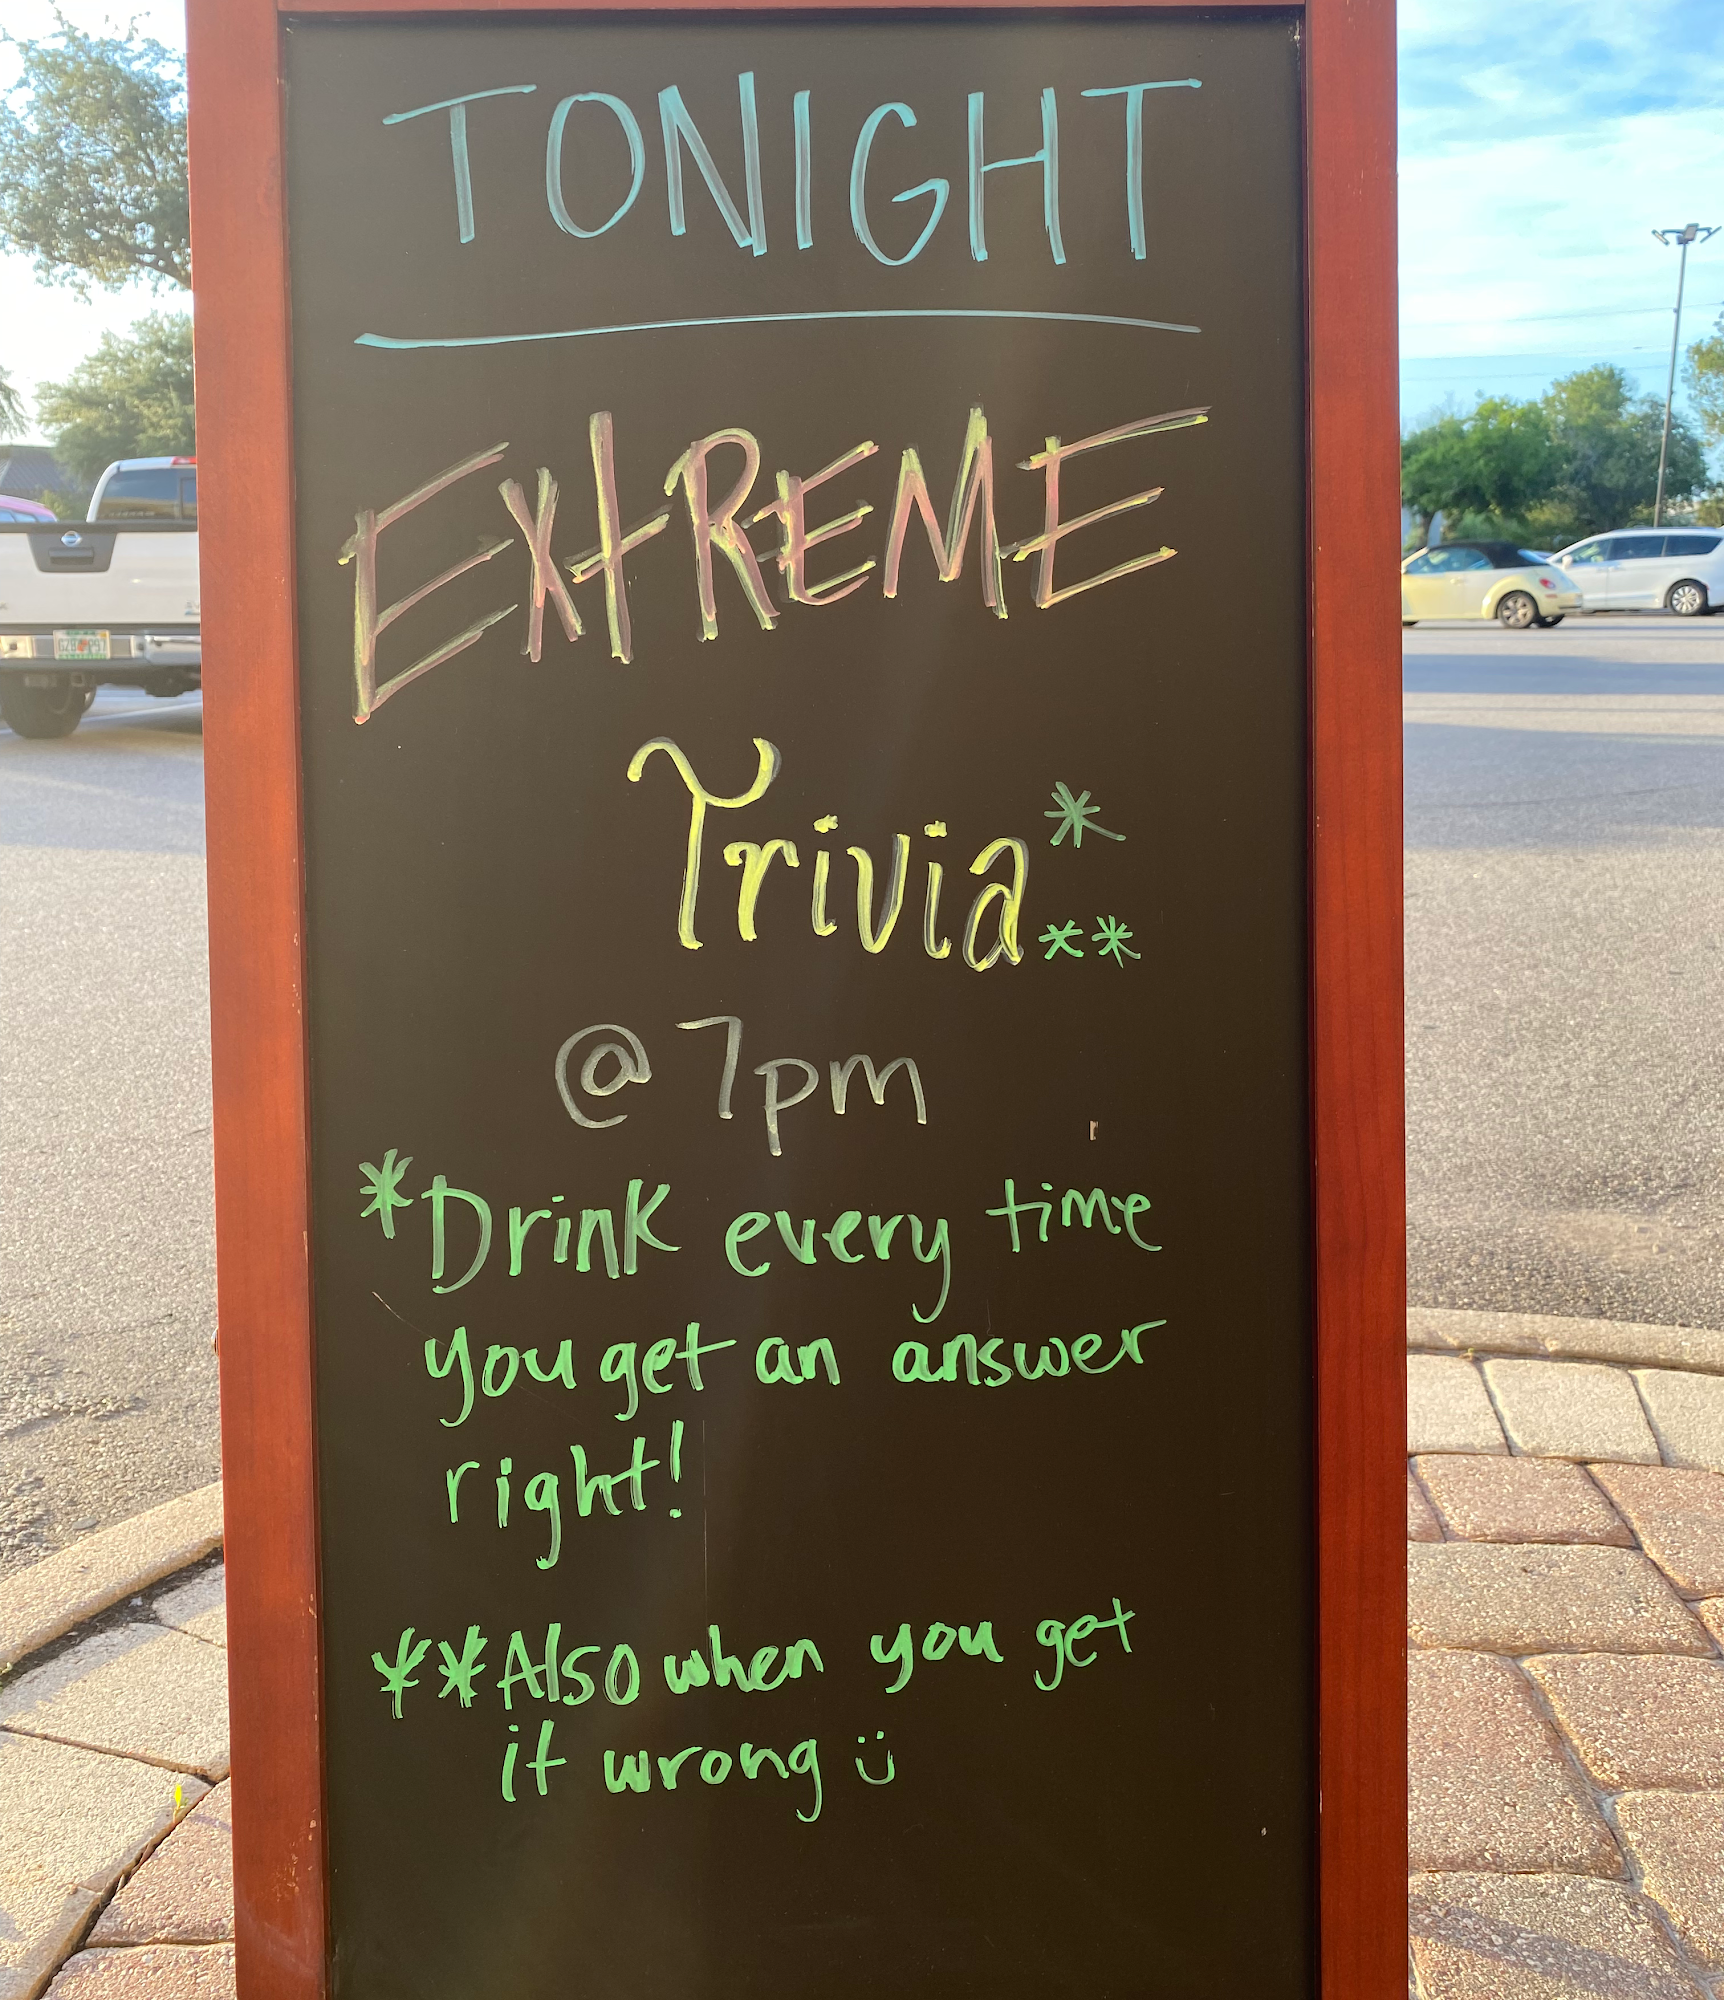 TONIGHT
EXTREME
Trivia*
**
@ 7pm
*Drink every time
you get an answer
right!
**Also when you get
it wrong ü